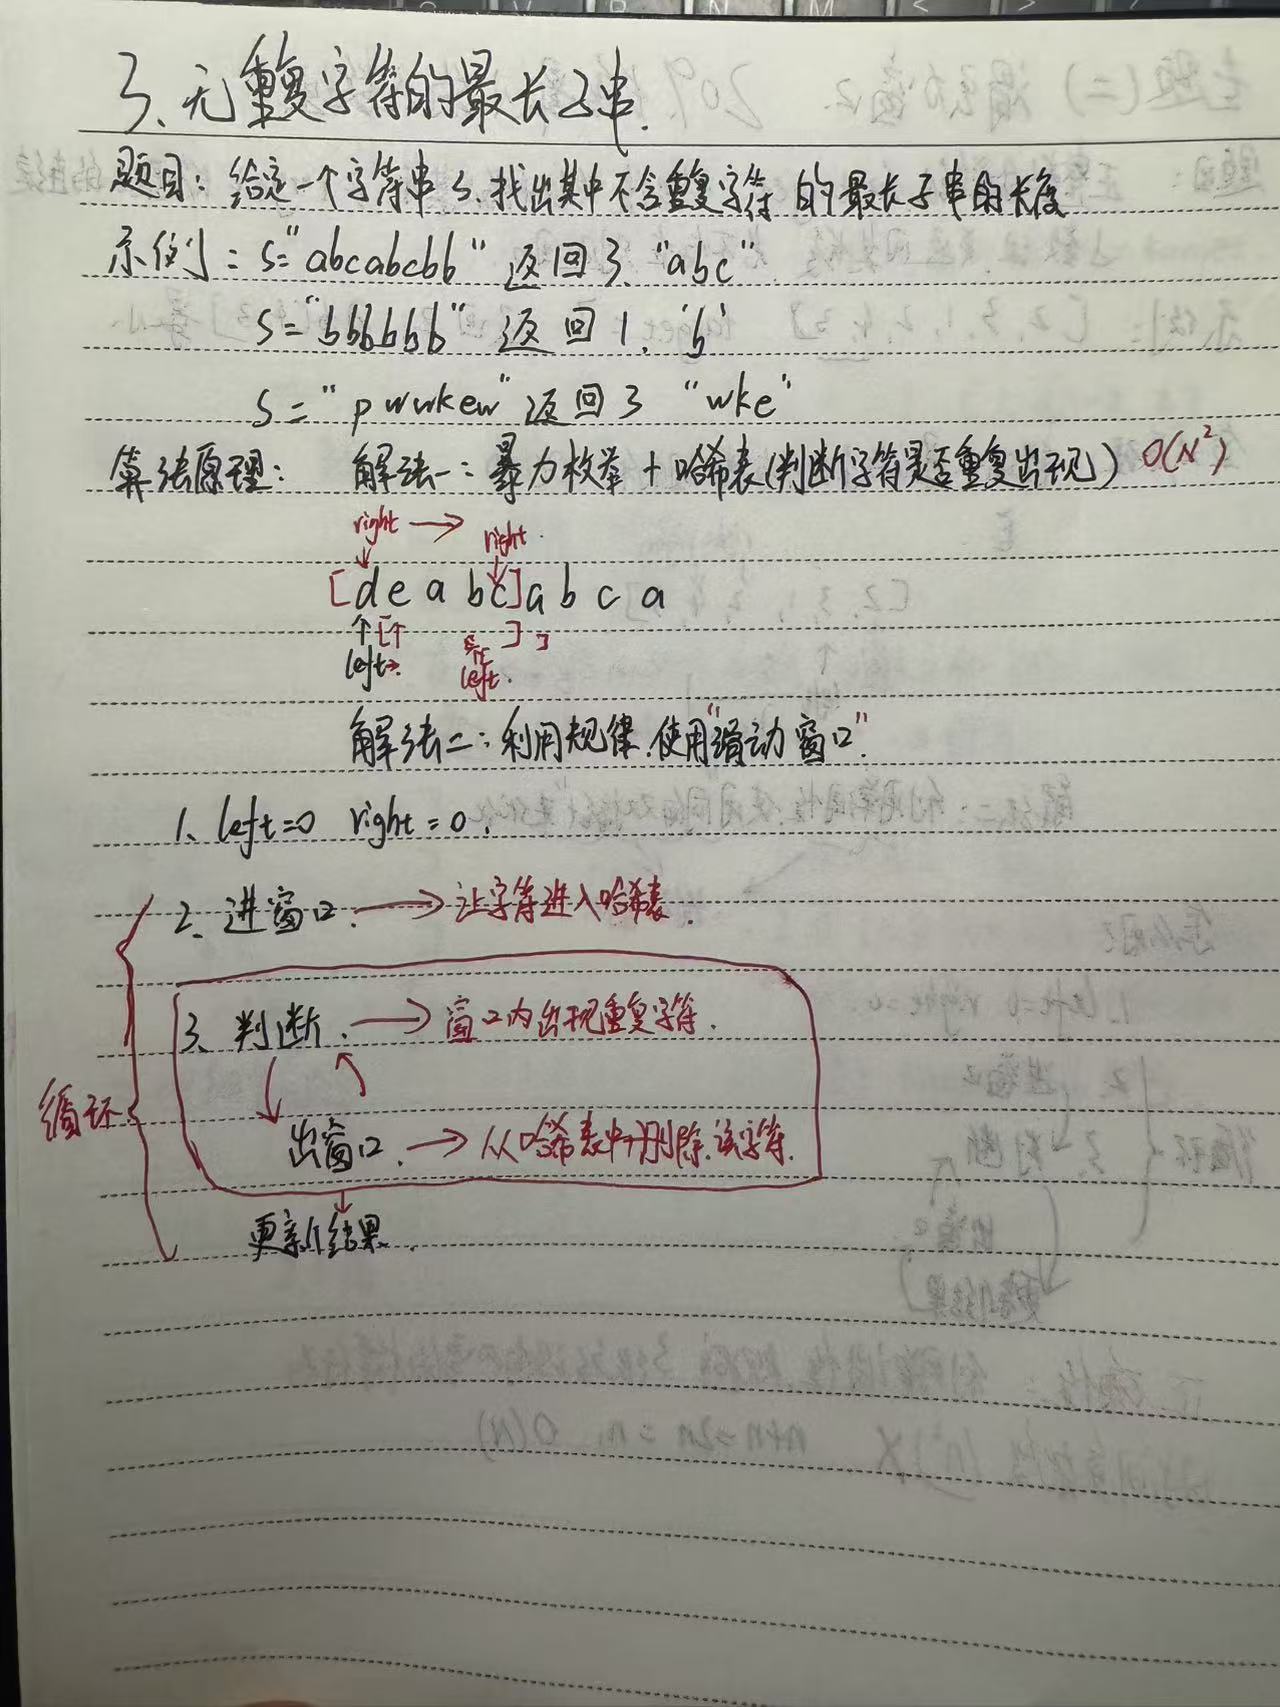 3、无重复字符的最长子串.
题目: 给定一个字符串 s, 找出其中不含重复字符 的最长子串的长度
示例: s="abcabcbb" 返回3, "abc"
s="bbbbbb" 返回1, 'b'
s="pwwkew" 返回3 "wke"
算法原理: 解法一: 暴力枚举 + 哈希表(判断字符是否重复出现) O(N²)
right → right.
[d e a b c] a b c a
left left.
解法二: 利用规律, 使用"滑动窗口".
1、left=0 right=0.
2、进窗口. → 让字符进入哈希表.
3、判断. → 窗口内出现重复字符.
循环
出窗口. → 从哈希表中删除该字符.
更新结果.